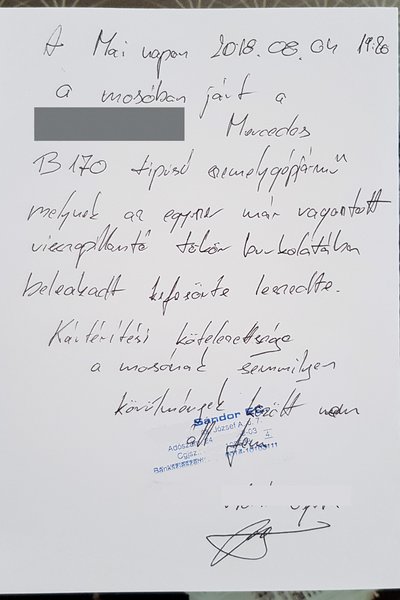 A Mai napon 2018.08.04 19:20
a mosóban járt a
Mercedes
B 170 tipusú személygépjármű
melynek az egyszer már ragasztott
visszapillantó tükör burkolatában
beleakadt kefesörte leszedte.
Kártérítési kötelezettsége
a mosónak semmilyen
körülmények között nem
áll fenn
Sandor EC
József A. u. 7.
Adószám
Cgjsz.:
Bankszámlaszám: